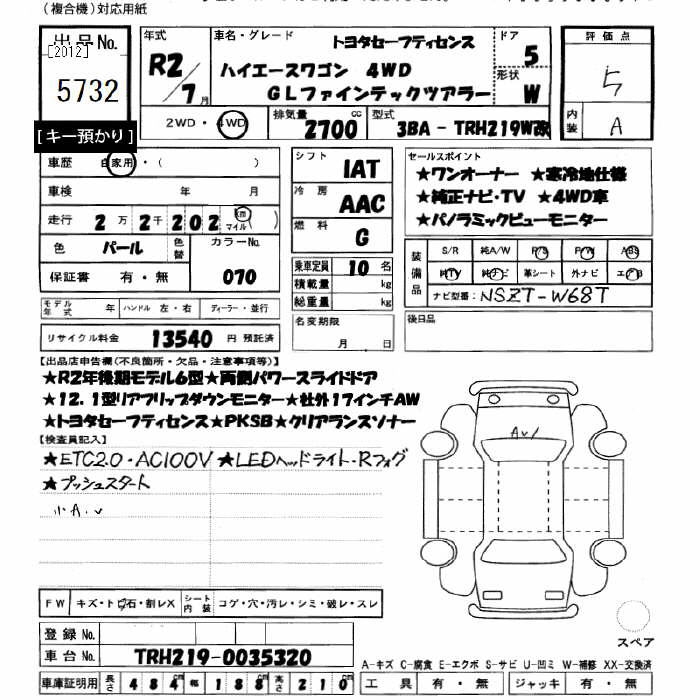 (複合機)対応用紙
出品No.
[2012]
5732
[キー預かり]
年式
R2/7月
車名・グレード トヨタセーフティセンス
ハイエースワゴン 4WD
GLファインテックツアラー
ドア 5
形状 W
評価点
5
内装 A
2WD・4WD
排気量 2700 cc
型式 3BA-TRH219W改
車歴 自家用・( )
車検 年 月
走行 2万2千202 km マイル( )
色 パール 色替 カラーNo. 070
保証書 有・無
シフト IAT
冷房 AAC
燃料 G
乗車定員 10 名
積載量 kg
総重量 kg
セールスポイント
★ワンオーナー ★寒冷地仕様
★純正ナビ・TV ★4WD車
★パノラミックビューモニター
装備品
S/R 純A/W P/S P/W ABS
純TV 純ナビ 革シート 外ナビ エアB
ナビ型番: NSZT-W68T
モデル年式 年 ハンドル 左・右 ディーラー・並行
リサイクル料金 13540 円 預託済
名変期限
月 日
後日品
【出品店申告欄(不良箇所・欠品・注意事項等)】
★R2年後期モデル6型★両側パワースライドドア
★12.1型リアフリップダウンモニター★社外17インチAW
★トヨタセーフティセンス★PKSB★クリアランスソナー
【検査員記入】
★ETC2.0・AC100V ★LEDヘッドライト・Rフォグ
★プッシュスタート
小A.v
Av1
FW キズ・トビ石・割レX シート内装 コゲ・穴・汚レ・シミ・破レ・スレ
スペア
登録No.
車台No. TRH219-0035320
A-キズ C-腐食 E-エクボ S-サビ U-凹ミ W-補修 XX-交換済
車庫証明用 長さ 484 幅 188 高さ 210
工具 有・無 ジャッキ 有・無